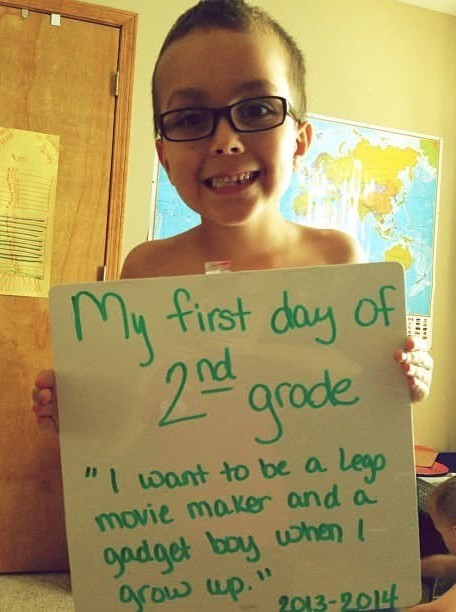 My first day of
2nd grade
"I want to be a Lego
movie maker and a
gadget boy when I
grow up."
2013-2014